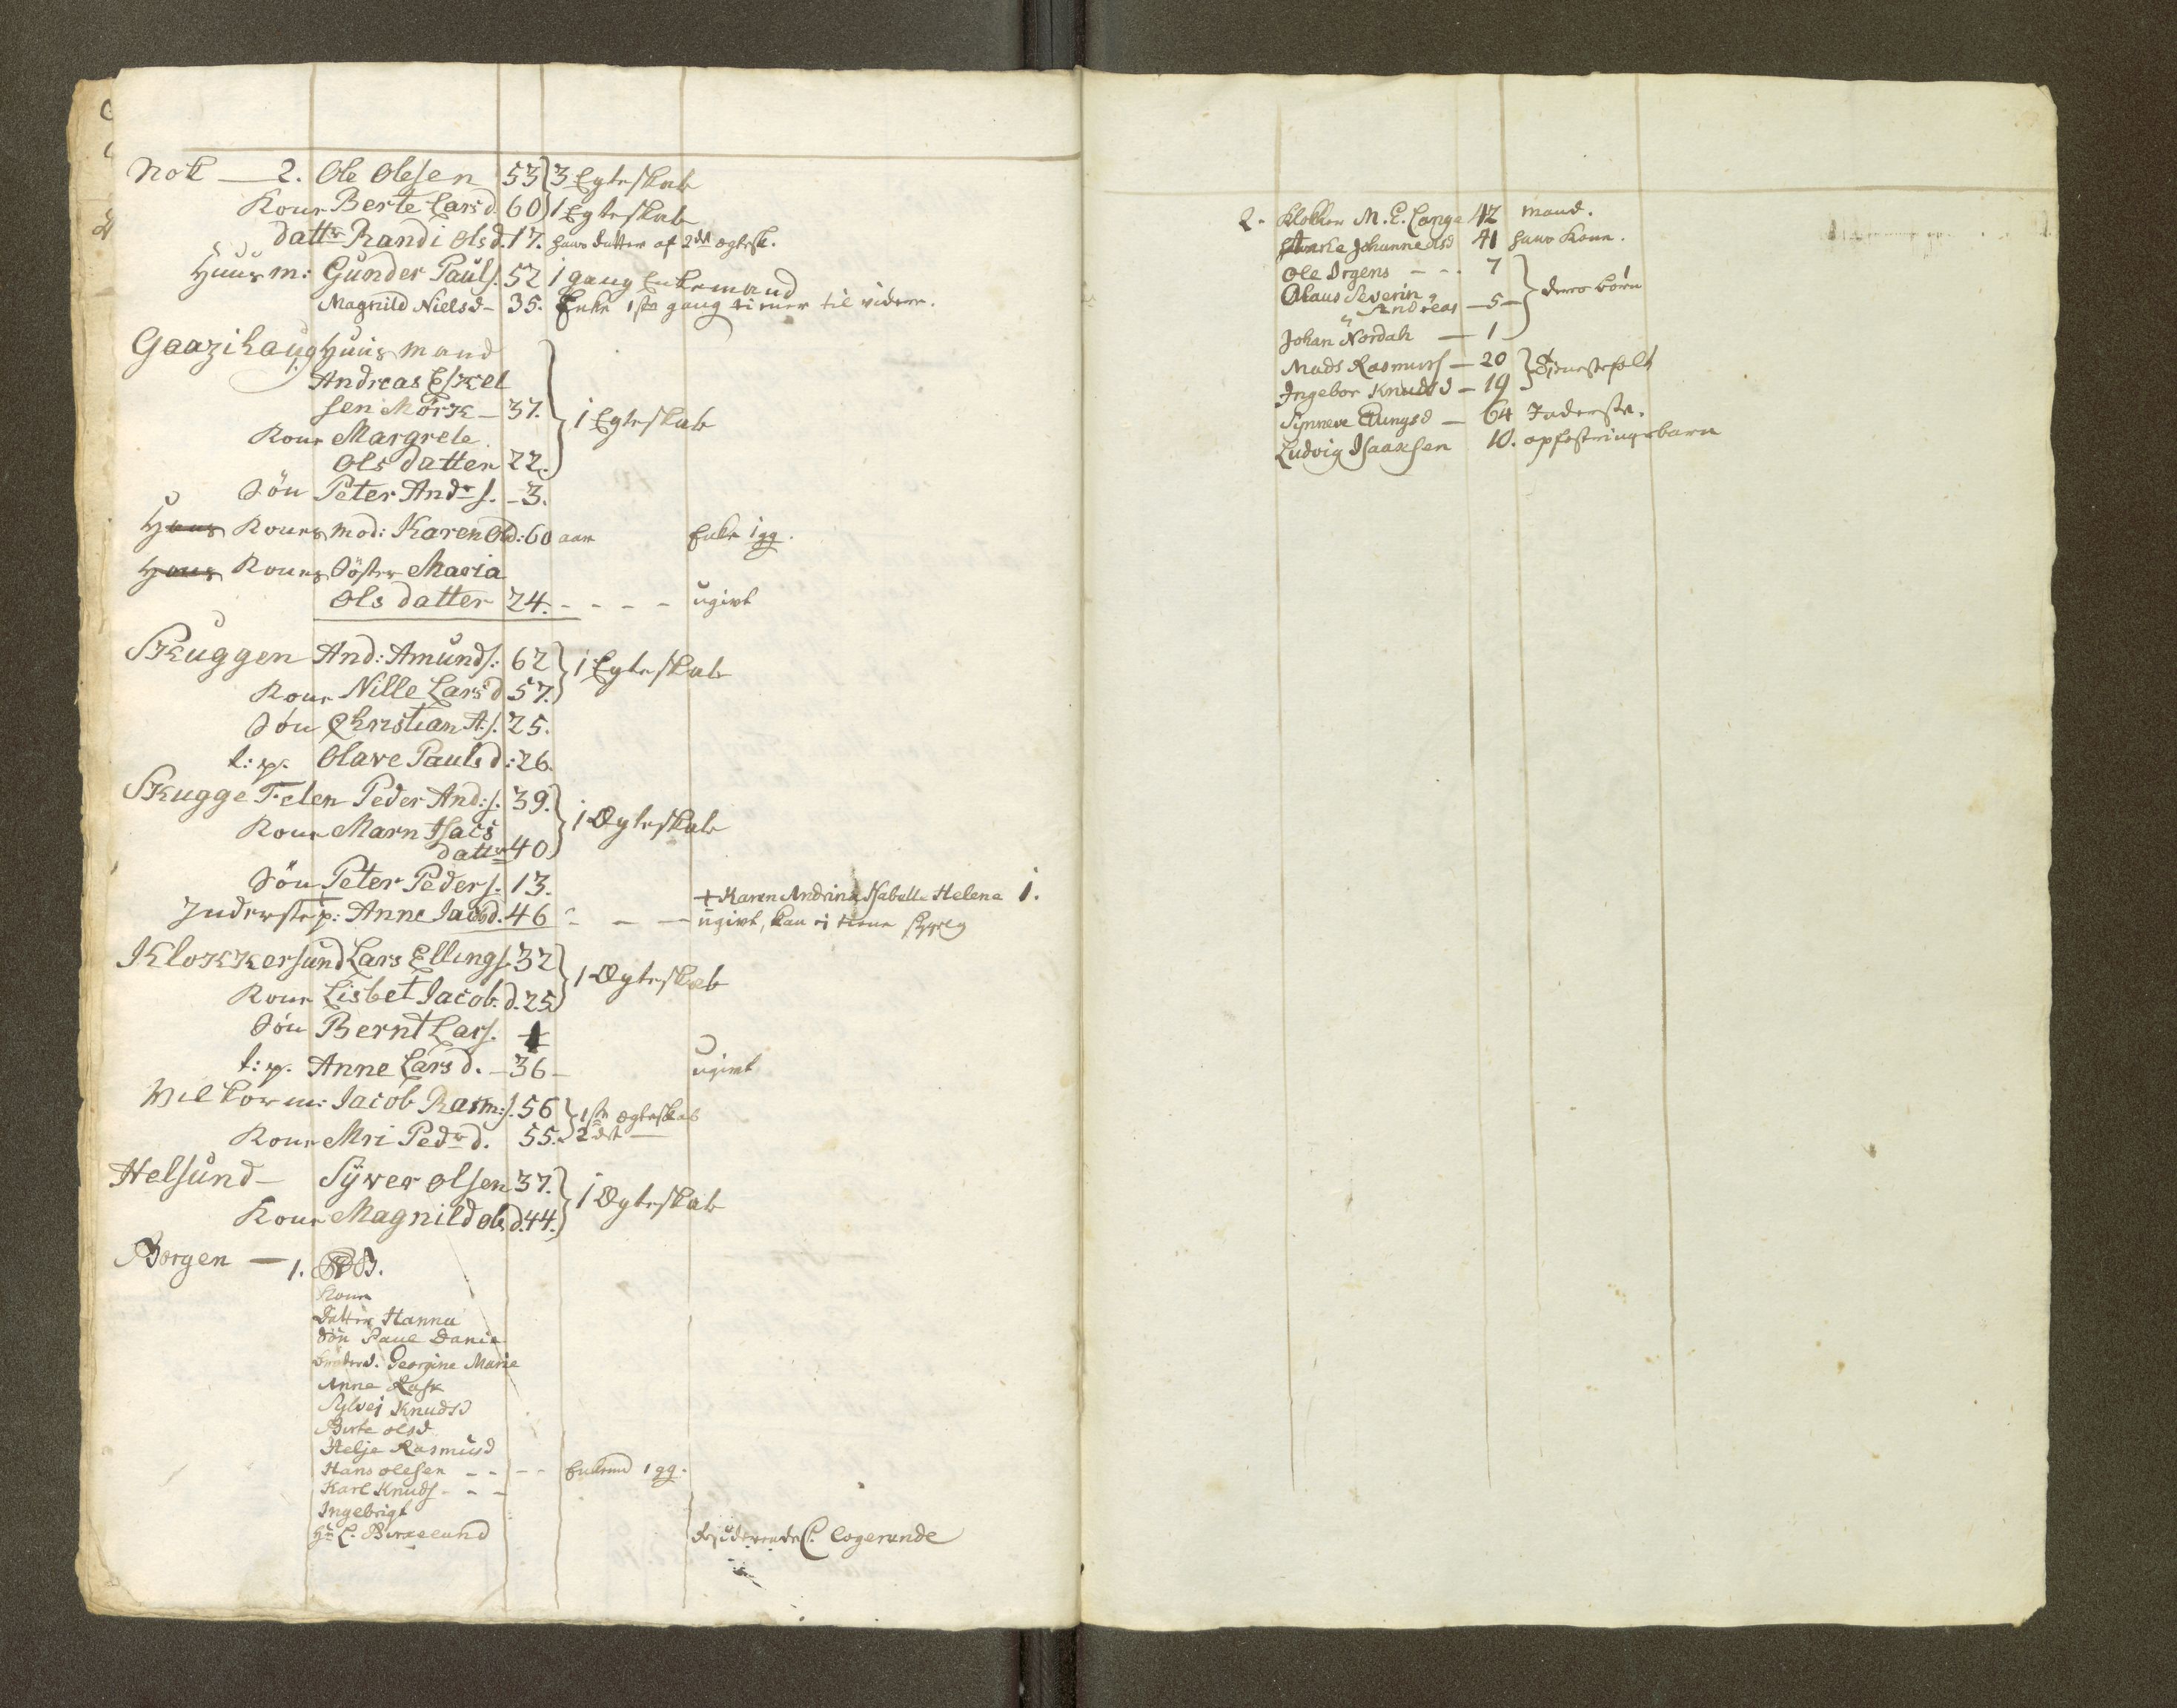 Nok — 2. Ole Olesen 53 3 Egteskab
Kone Berte Larsd. 60 1 Egteskab
datter Randi Olsd. 17. hans datter af 2det egtesk.
Huusm: Gunder Pauls. 52 1 gang Enkemand
Magnild Nielsd - 35. Enke 1ste gang
Gaazihaug Huusmand
Andreas Eskel
sen Mörk - 37.
1 Egteskab
Kone Margrete
Ols datter 22.
Sön Peter Andr. s. - 3.
Hans Kones mod: Karen Old: 60 aar Enke 1 gg.
Hans Kones Söster Maria
Ols datter 24. - - - - ugivt
Skuggen And: Amunds: 62 1 Egteskab
Kone Nille Larsd 57.
Sön Christian A: s. 25.
t: p. Olave Paulsd: 26.
Skugge Felen Peder And: s. 39.
1 Ægteskab
Kone Marn Isacs
datter 40.
Sön Peter Peders. 13.
+ Karen Andrina Isabella Helena 1.
Inderste p: Anne Jacobsd. 46 - - - ugivt, kan ej tiene
Klokkersund Lars Ellings. 32
1 Ægteskab
Kone Lisbet Jacob. d. 25
Sön Bernt Lars. 1
t: p. Anne Larsd. - 36 - ugivt
Wilkorm: Jacob Rasm: s. 56 1ste ægteskab
Kone Mri Pedr d. 55. 2det —
Helsund - Syver Olsen 37.
1 Ægteskab
Kone Magnild Ols d. 44.
Borgen — 1.
Kone
Datter Hanna
Sön Paul Danie
Broderd. Georgine Marie
Anne Rask
Sylvei Knudsd
Birte Olsd
Helje Rasmusd
Hans Olesen - - - - Enkemd 1 gg.
Karl Knuds - - -
Ingebrigt
Hr L. Birkelund logerende
2. Klokker M. E. Lange 42 mand.
Johannesd 41 hans Kone.
Ole Irgens - - - 7
Olaus Severin
deres börn
Andreas - 5 -
Johan Nordah — 1
Mads Rasmuss — 20 Tjenestefolk
Ingebor Knudsd - 19
Synneve Ellingsd — 64 Inderste.
Ludvig Isaaksen 10. opfostringsbarn